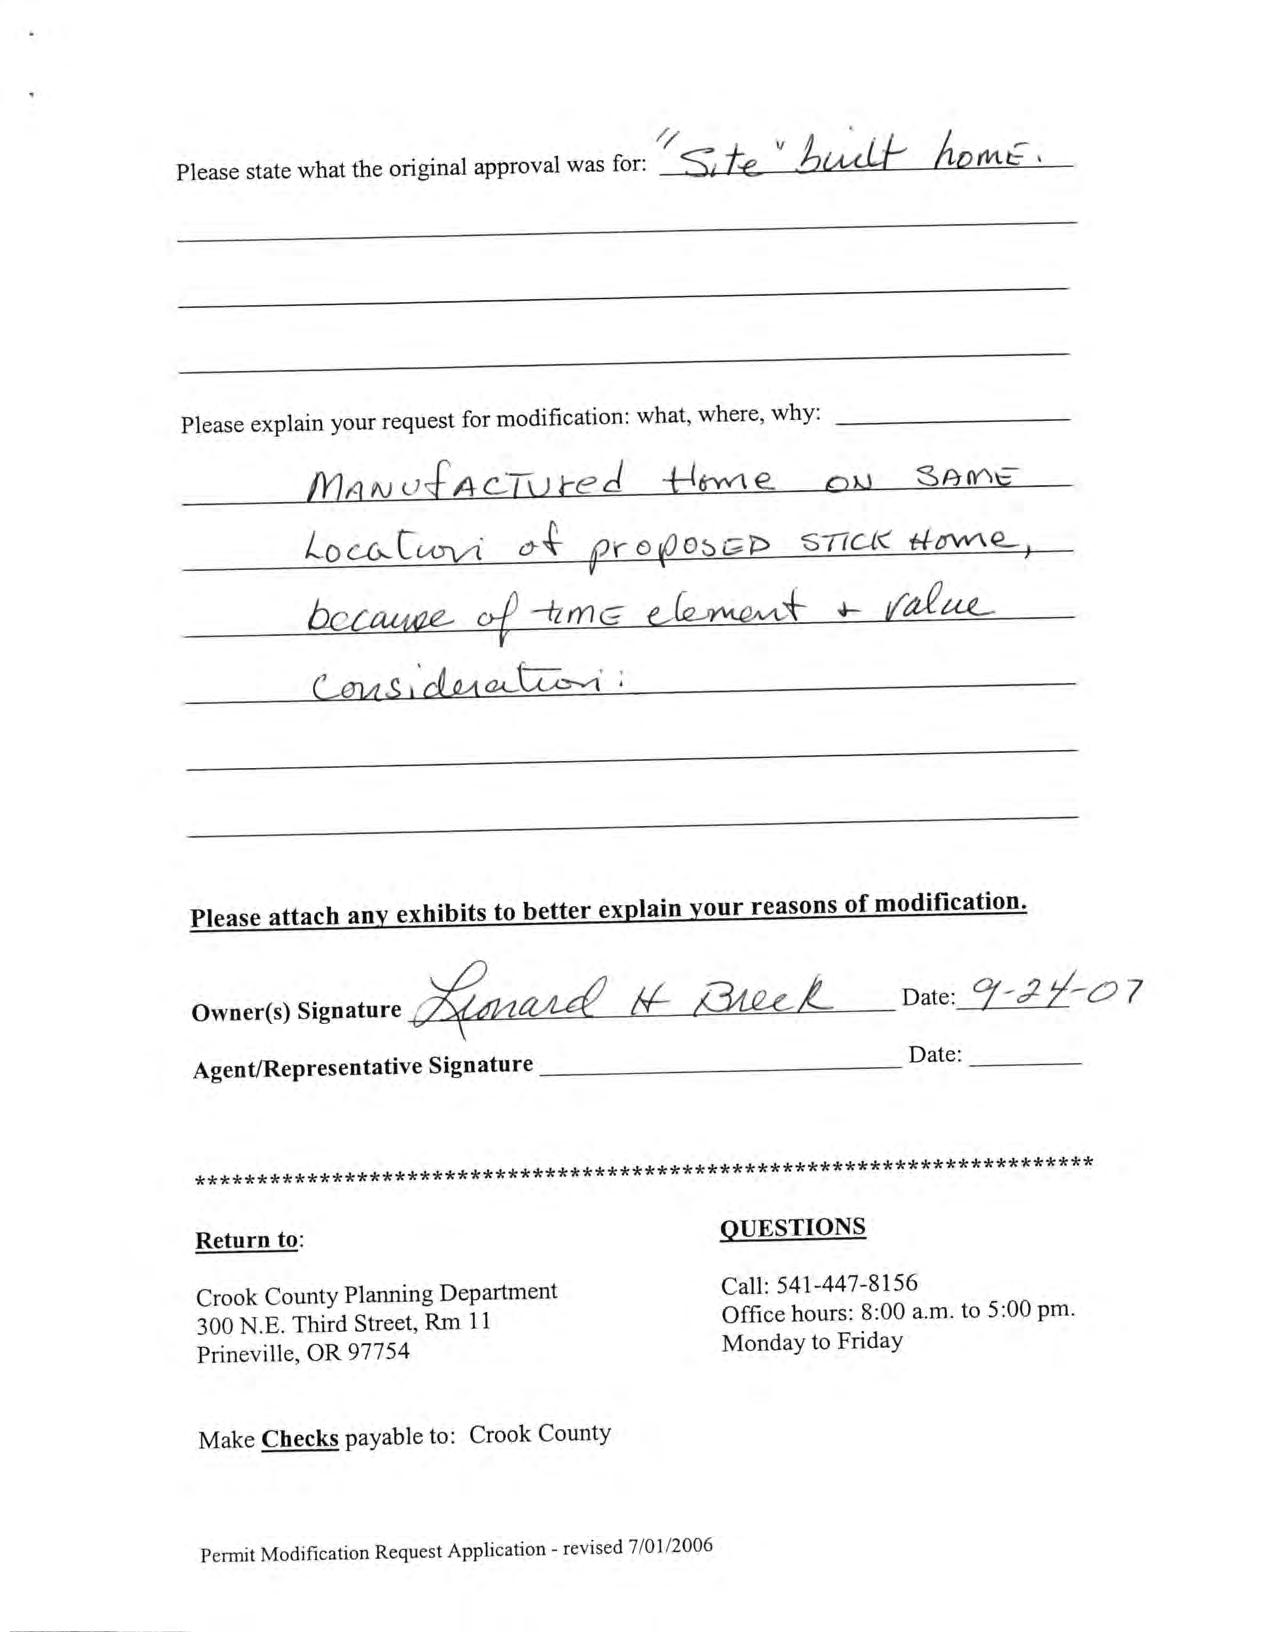 Please state what the original approval was for: "Site" built home.
Please explain your request for modification: what, where, why:
MANUfACTUred Home ON SAME
Location of proposED STICK Home,
because of timE element + value
Consideration.
Please attach any exhibits to better explain your reasons of modification.
Owner(s) Signature Leonard H Breek Date: 9-24-07
Agent/Representative Signature Date:
************************************************************************
Return to:
QUESTIONS
Crook County Planning Department
300 N.E. Third Street, Rm 11
Prineville, OR 97754
Call: 541-447-8156
Office hours: 8:00 a.m. to 5:00 pm.
Monday to Friday
Make Checks payable to: Crook County
Permit Modification Request Application - revised 7/01/2006